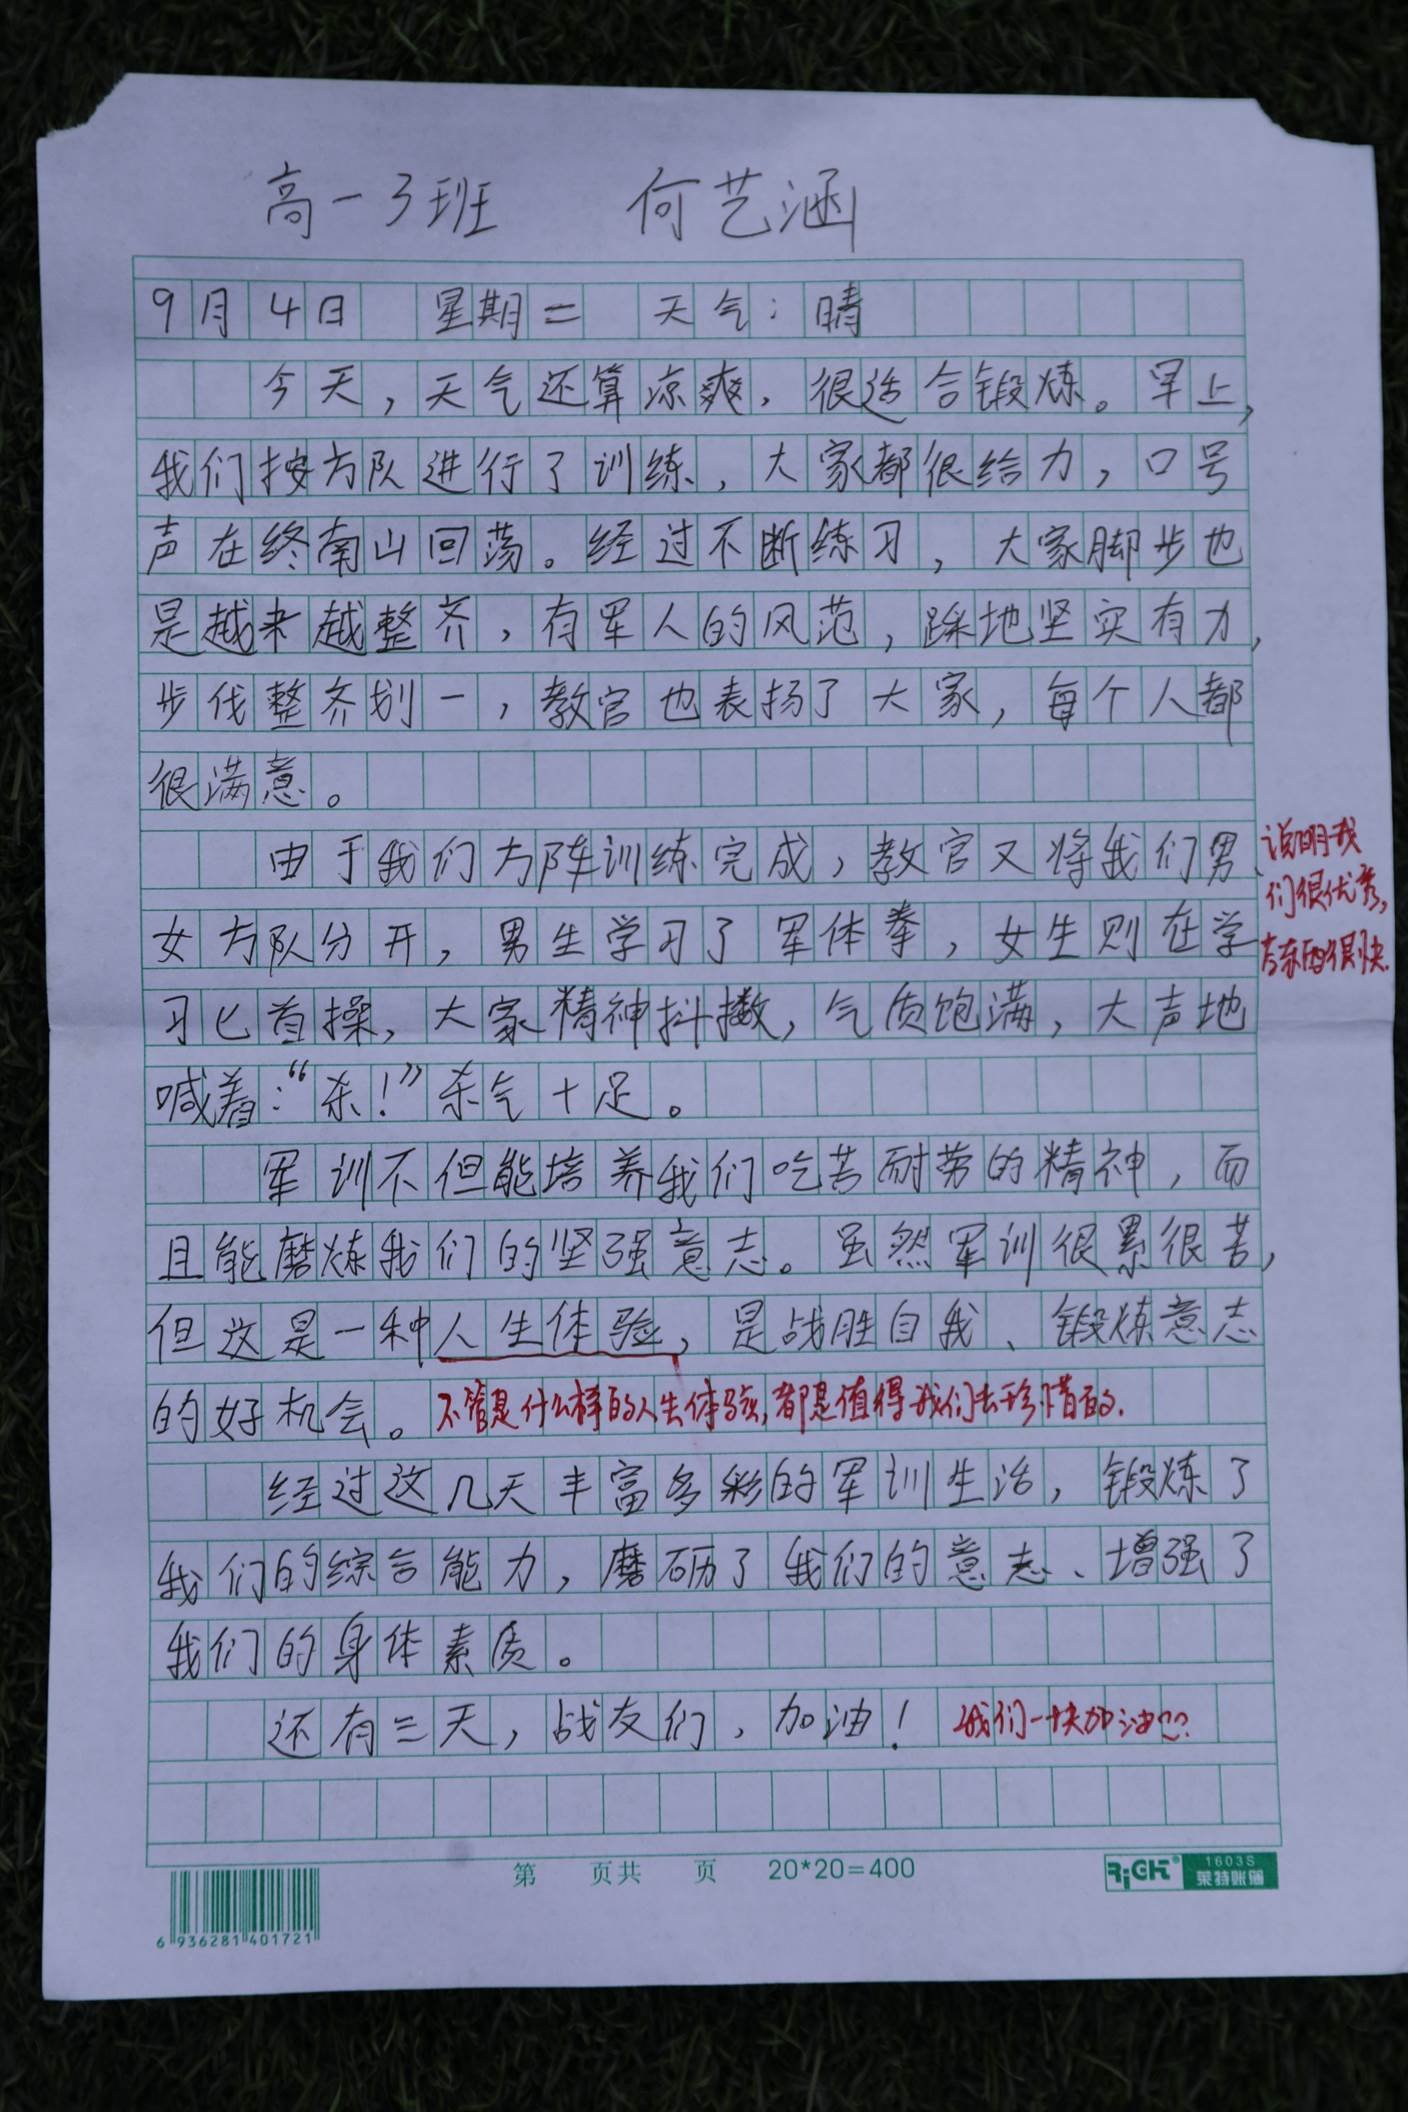 高一3班 何艺涵
9月4日 星期二 天气：晴
今天，天气还算凉爽，很适合锻炼。早上，
我们按方队进行了训练，大家都很给力，口号
声在终南山回荡。经过不断练习，大家脚步也
是越来越整齐，有军人的风范，踩地坚实有力，
步伐整齐划一，教官也表扬了大家，每个人都
很满意。
由于我们方阵训练完成，教官又将我们男、
说明我
们很优秀，
女方队分开，男生学习了军体拳，女生则在学
东西很快.
习匕首操，大家精神抖擞，气质饱满，大声地
喊着：“杀！”杀气十足。
军训不但能培养我们吃苦耐劳的精神，而
且能磨炼我们的坚强意志。虽然军训很累很苦，
但这是一种人生体验，是战胜自我、锻炼意志
的好机会。不管是什么样的人生体验，都是值得我们去珍惜的.
经过这几天丰富多彩的军训生活，锻炼了
我们的综合能力，磨砺了我们的意志、增强了
我们的身体素质。
还有三天，战友们，加油！ 我们一块加油
第 页共 页 20*20=400
RiGHT® 1603S 莱特账簿
6 936281 401721